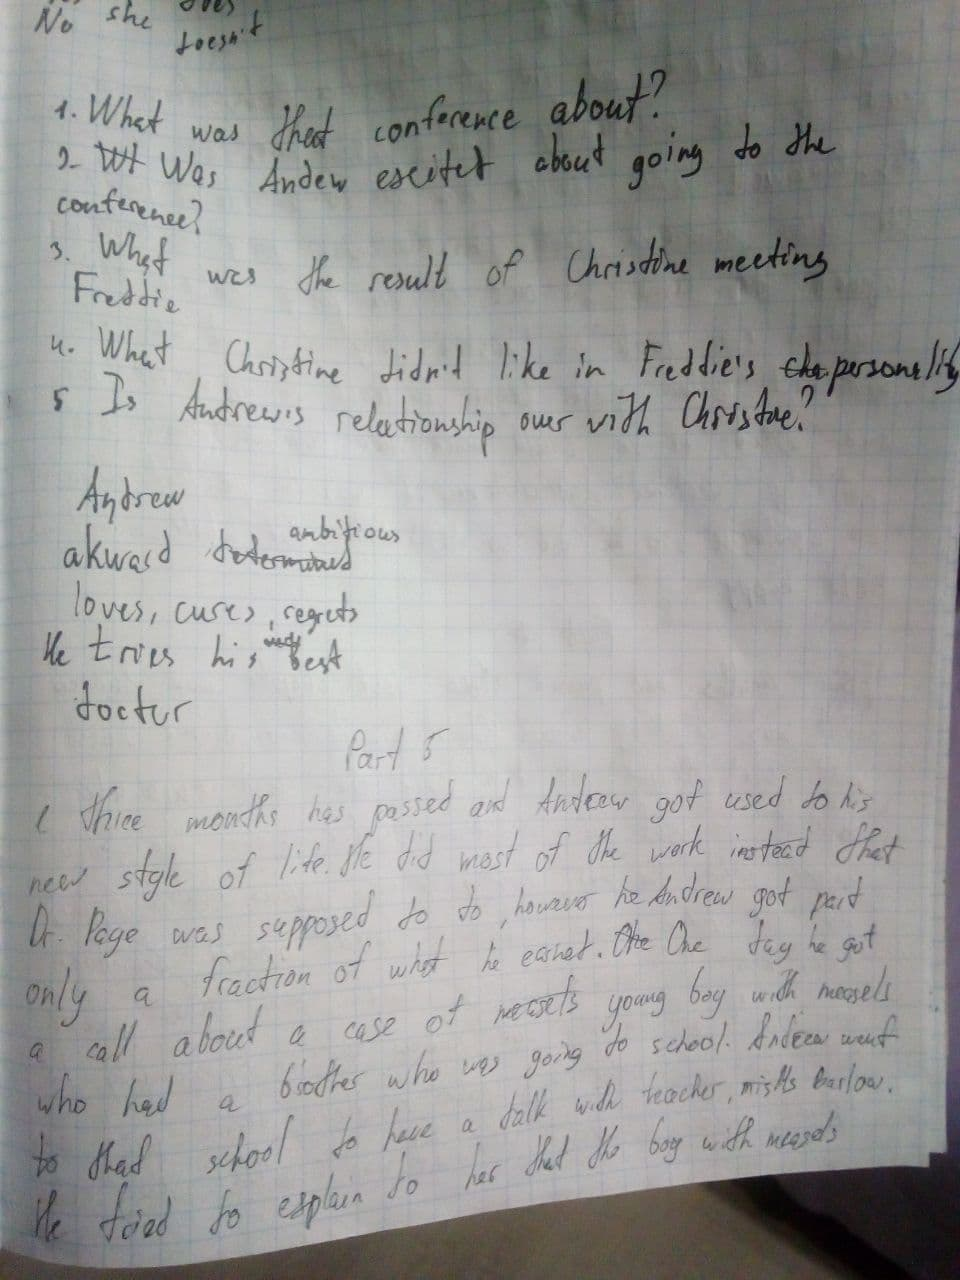 No she does
doesn't
1. What was that conference about?
2. Was Andew escitet about going to the
conference?
3. What was the result of Christine meeting
Freddie
4. What Christine didn't like in Freddie's personality
5 Is Andrew's relationship over with Christine?
Andrew
akward determined ambitious
loves, cures, regrets
He tries his very best
doctor
Part 5
Three months has passed and Andrew got used to his
new style of life. He did most of the work instead that
Dr. Page was supposed to do, however he Andrew got paid
only a fraction of what he earnet. One One day he got
a call about a case of measels young boy with measels
who had a brother who was going to school. Andrew went
to that school to have a talk with teacher, Barlow.
He tried to explain to her that the boy with measels